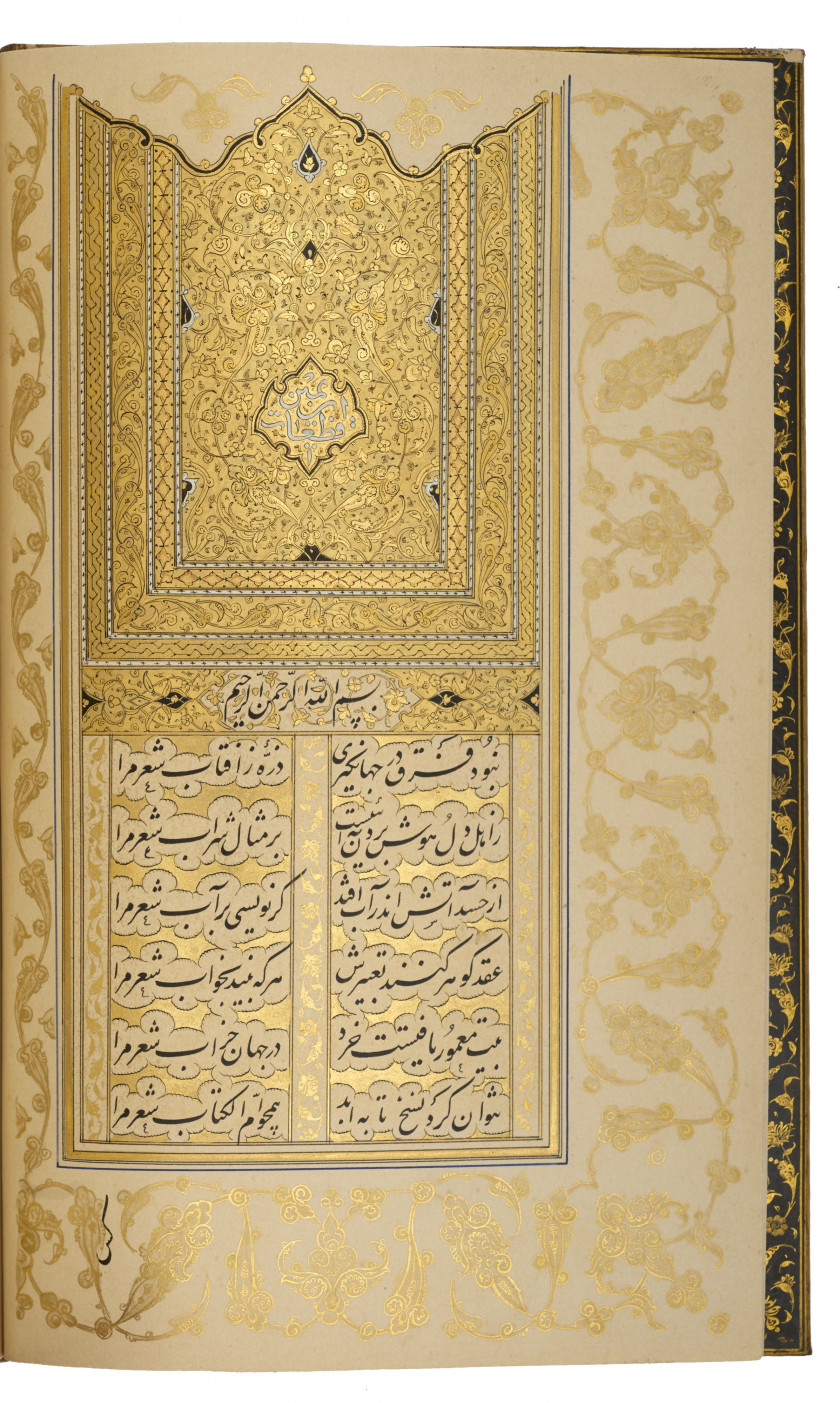 قطعات
بسم الله الرحمن الرحیم
نبود فرق در جهانگیری ذرّه ز آفتاب شعر مرا
ز اهل دل هوش بردن بر مثال شراب شعر مرا
از حسد آتش اندر آب افتد گر نویسی بر آب شعر مرا
عقد گوهر کنند تعبیرش هر که بیند بخواب شعر مرا
بیت معمور یافتست خرد در جهان خراب شعر مرا
نتوان کرد نسخ تا به ابد همچو امّ الکتاب شعر مرا